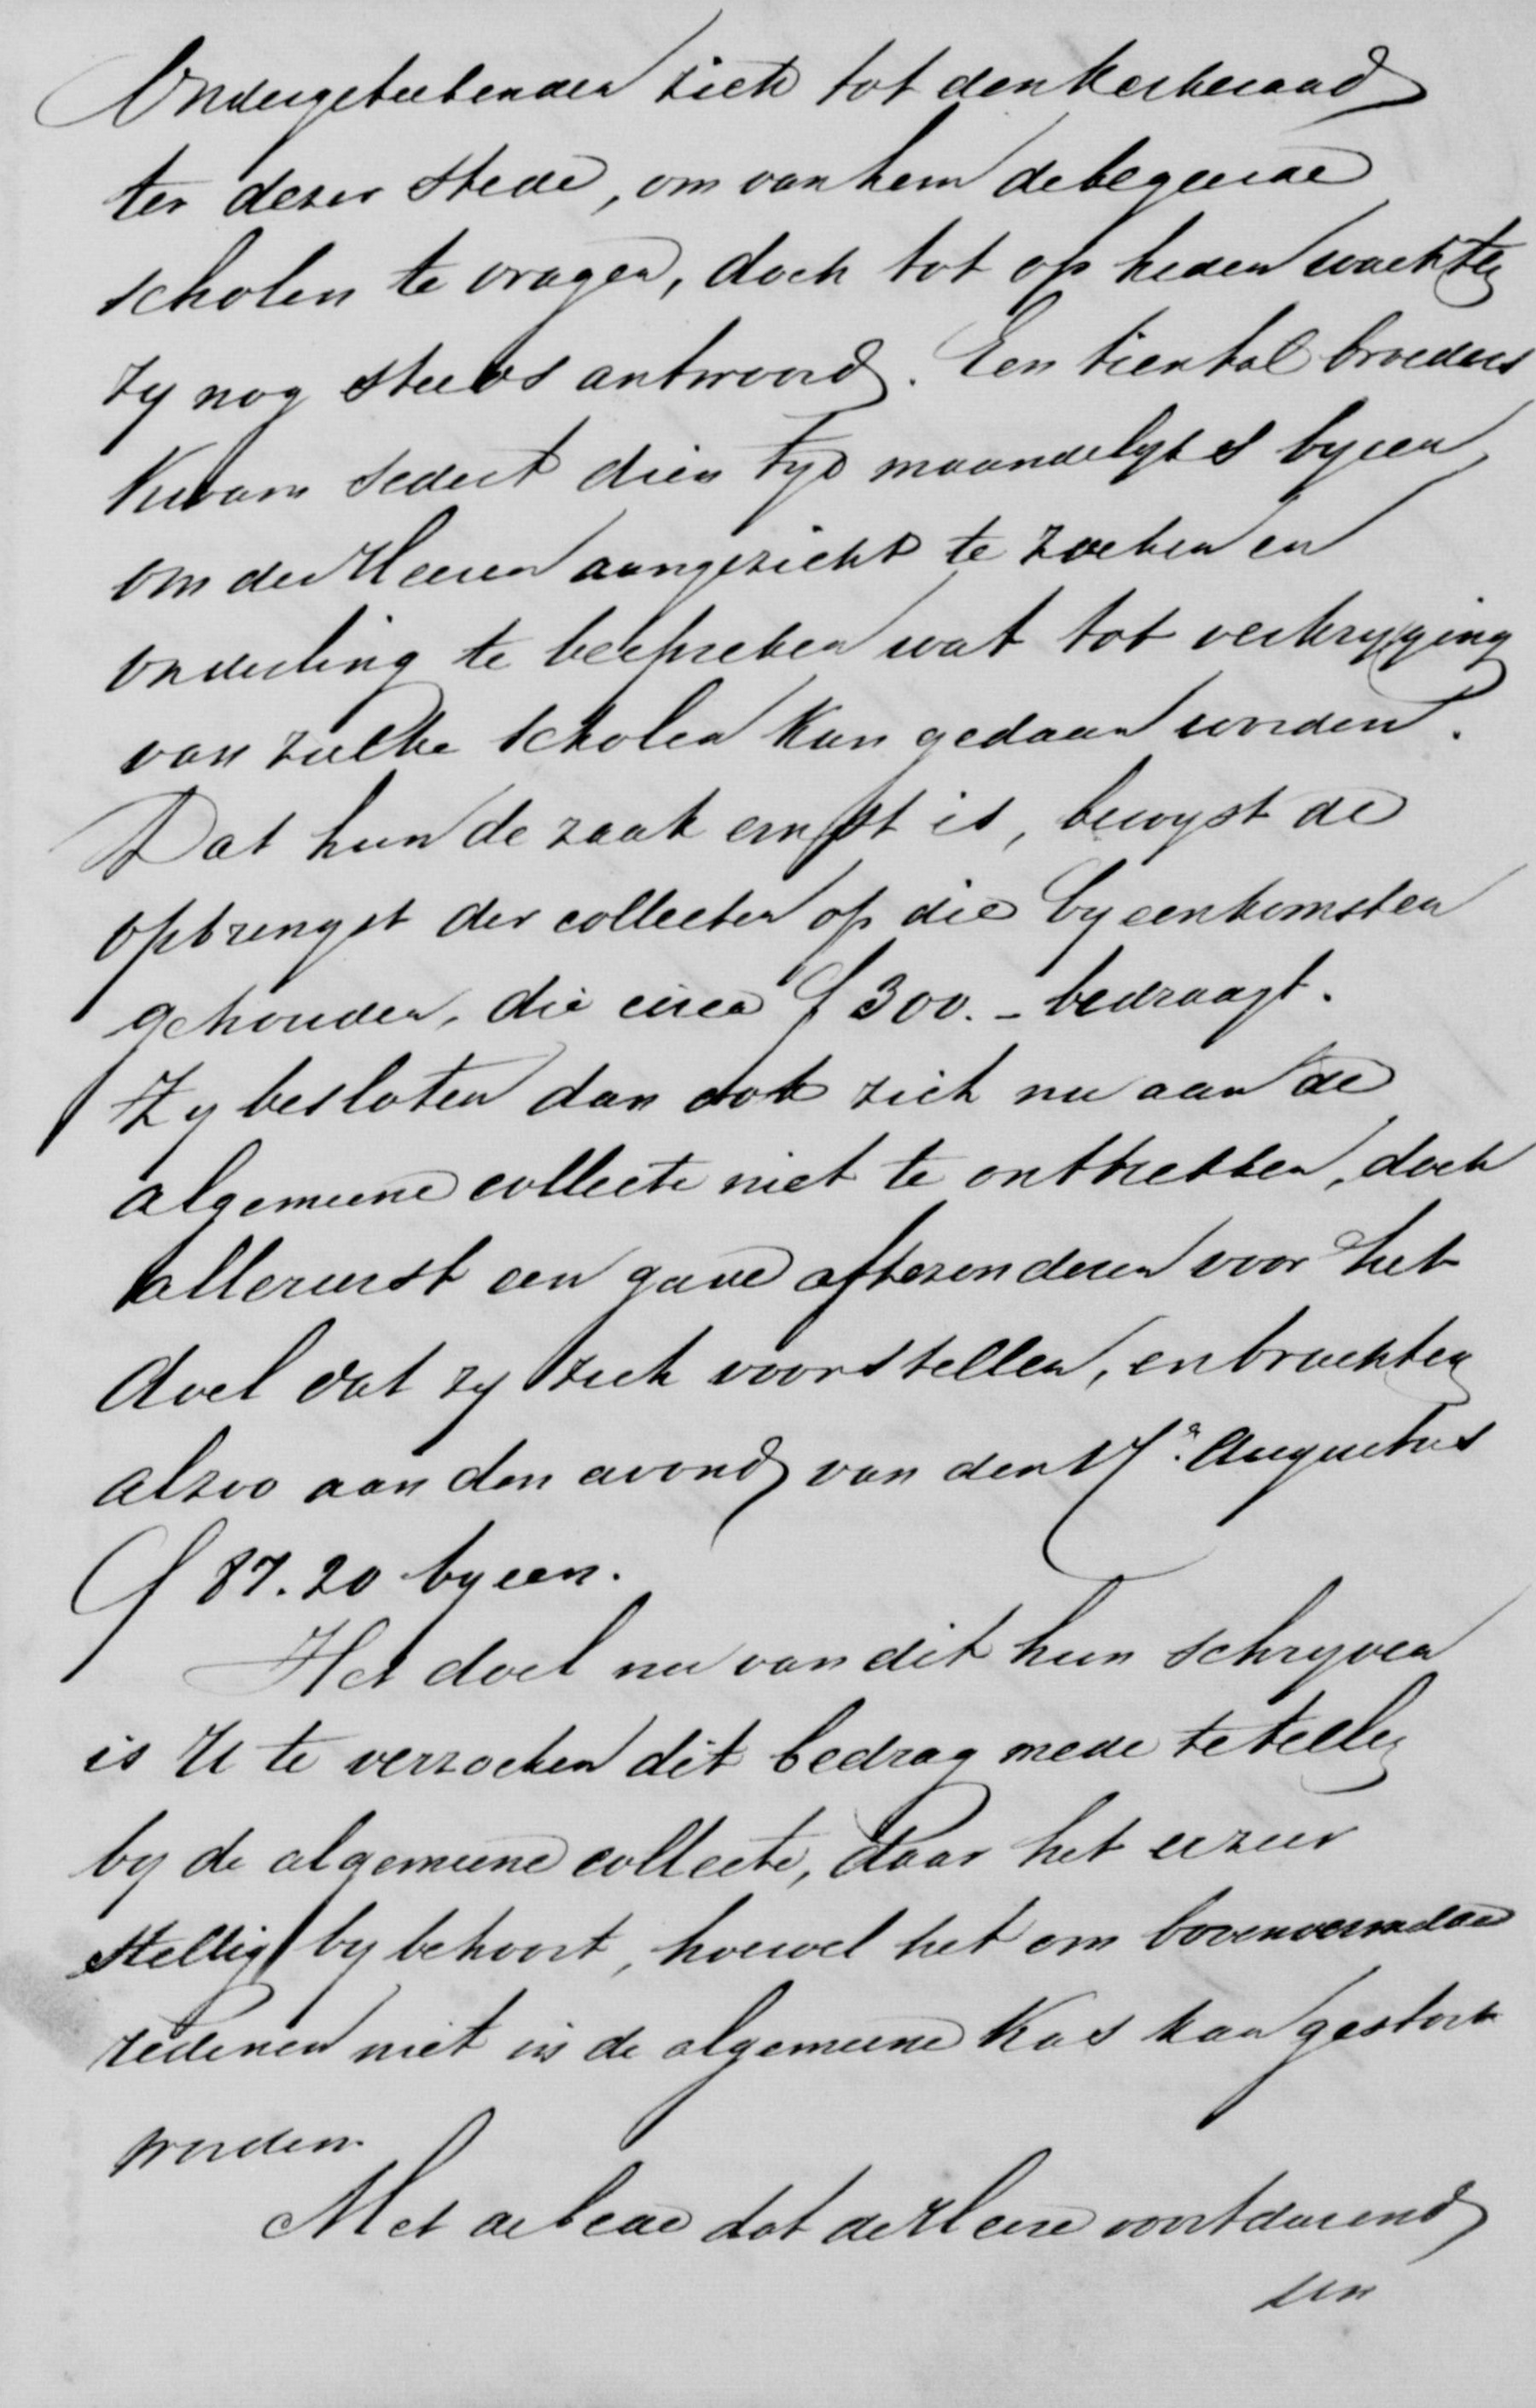 Ondergeteekenden zich tot den Kerkeraad
ter dezer stede, om van hem de begeerde
scholen te vragen, doch tot op heden wachten
zy nog steeds antwoord. Een tiental broeders
kwam sedert dien tyd maandelyks byeen,
om des Heeren aangezicht te zoeken en
onderling te bespreken wat tot verkryging
van zulke scholen kan gedaan worden.
Dat hun de zaak ernst is, bewyst de
opbrengst der collecten op die byeenkomsten
gehouden, die circa f 300.- bedraagt.
Zy besloten dan ook zich nu aan de
algemeene collecte niet te onttrekken, doch
allereerst een gave afte zonderen voor het
doel dat zy zich voorstellen, en brachten
alzoo aan den avond van den 17e. Augustus
f 87.20 byeen.
Het doel nu van dit hun schryven
is U te verzoeken dit bedrag mede te tellen
by de algemeene collecte, daar het er zeer
stellig by behoort, hoewel het om bovenvermelde
redenen niet in de algemeene Kas kan gestort
worden.
Met de bede dat de Heere voortdurend
zyn